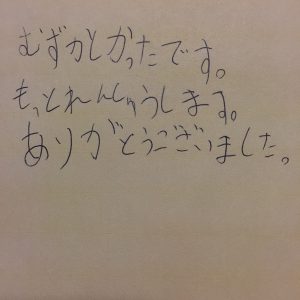 むずかとかったです。
もっとれんしゅうします。
ありがとうございました。